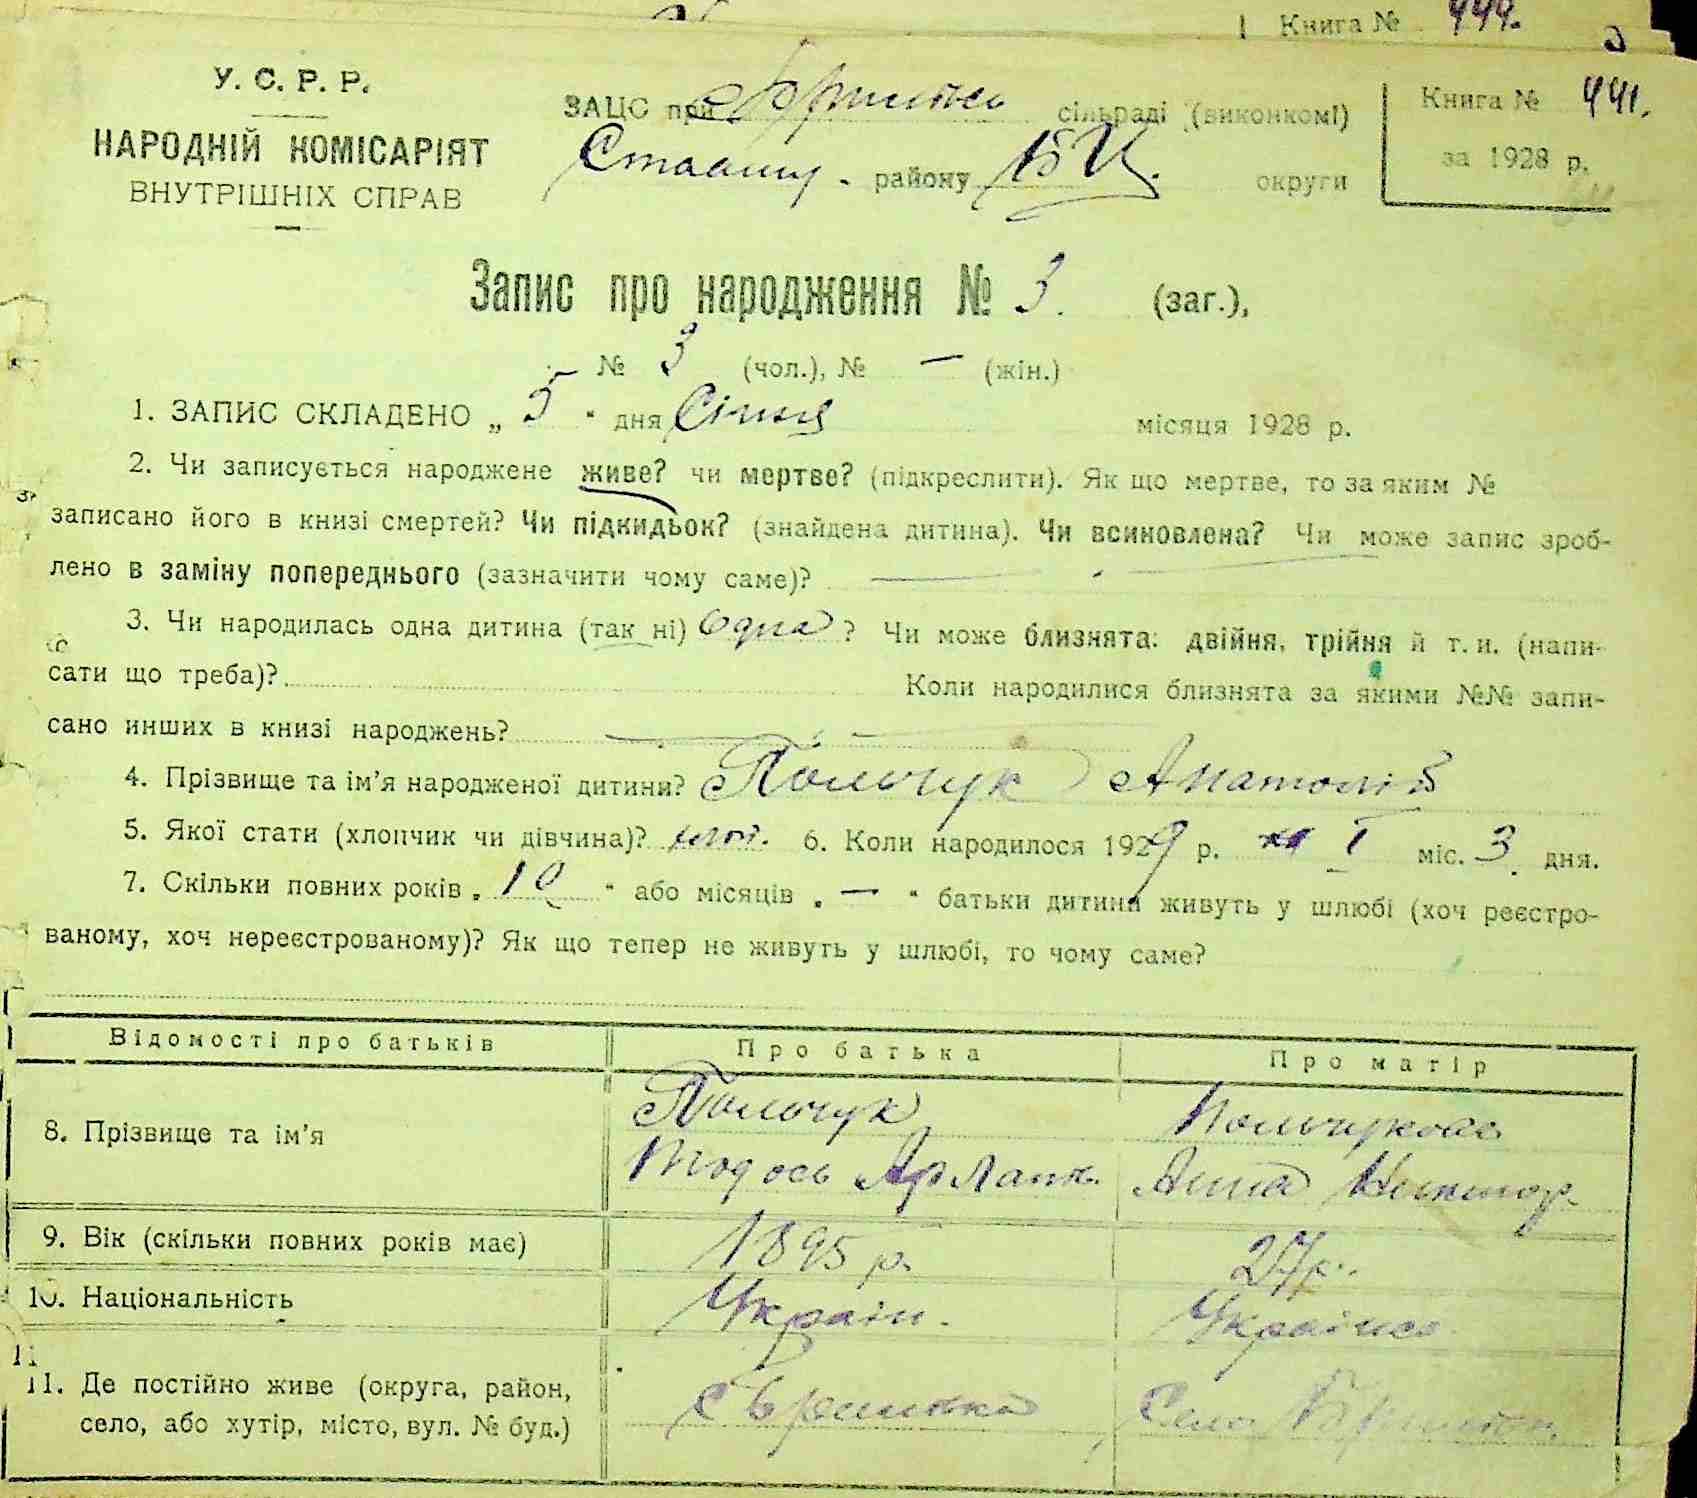 Книга № 444.
У. С. Р. Р.
НАРОДНІЙ КОМІСАРІЯТ
ВНУТРІШНІХ СПРАВ
ЗАЦС при сільраді (виконкомі)
району округи
Книга № 441.
за 1928 р.
Запис про народження № 3. (заг.),
№ 3 (чол.), № — (жін.)
1. ЗАПИС СКЛАДЕНО „ 5 “ дня Січня місяця 1928 р.
2. Чи записується народжене живе? чи мертве? (підкреслити). Як що мертве, то за яким №
записано його в книзі смертей? Чи підкидьок? (знайдена дитина). Чи всиновлена? Чи може запис зроб-
лено в заміну попереднього (зазначити чому саме)?
3. Чи народилась одна дитина (так ні) одна? Чи може близнята: двійня, трійня й т. и. (напи-
сати що треба)? Коли народилися близнята за якими №№ запи-
сано инших в книзі народжень?
4. Прізвище та ім’я народженої дитини? Польчук Анатолій
5. Якої стати (хлопчик чи дівчина)? 6. Коли народилося 1929 р. I міс. 3 дня.
7. Скільки повних років „ 10 “ або місяців „ — “ батьки дитини живуть у шлюбі (хоч реєстро-
ваному, хоч нереєстрованому)? Як що тепер не живуть у шлюбі, то чому саме?
Відомості про батьків Про батька Про матір
Польчук Польчукова
8. Прізвище та ім’я
Тодось Анна Никифор.
9. Вік (скільки повних років має) 1895 р. 27 р.
10. Національність Україн. Українка
11. Де постійно живе (округа, район,
село, або хутір, місто, вул. № буд.) Село